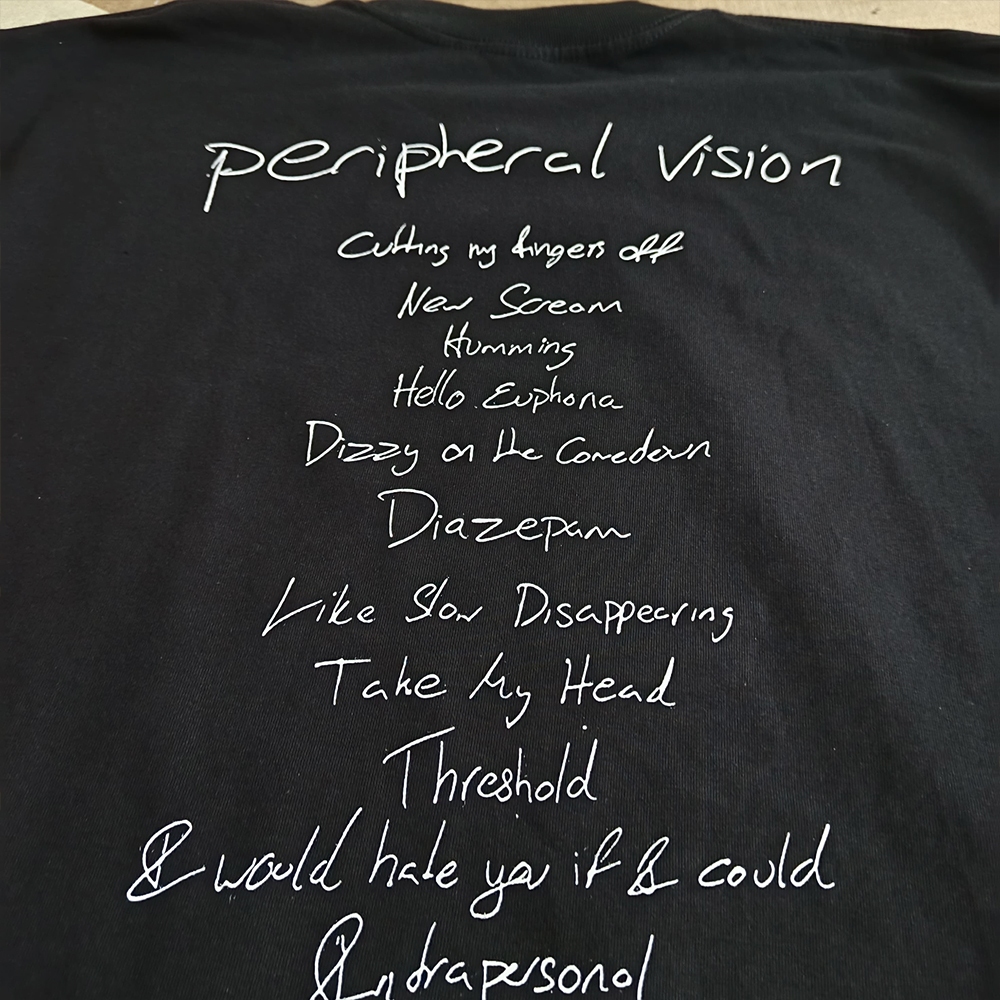 peripheral vision
Cutting my fingers off
New Scream
Humming
Hello Euphoria
Dizzy on the Comedown
Diazepam
Like Slow Disappearing
Take My Head
Threshold
I would hate you if I could
Intrapersonal